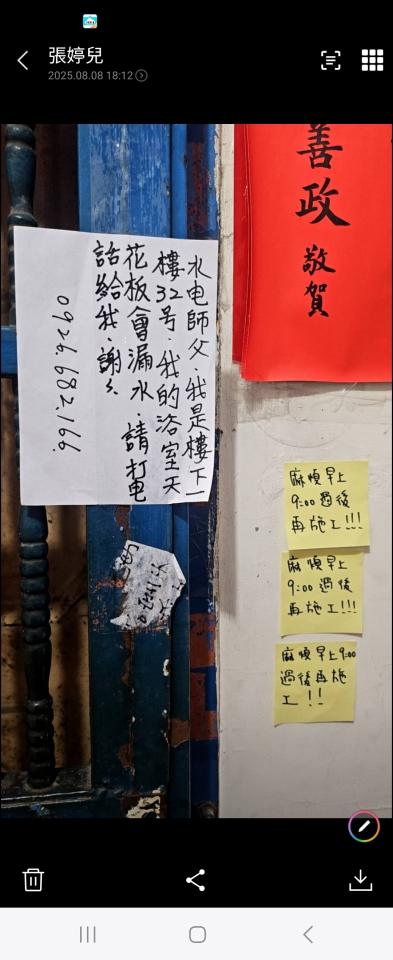 張婷兒
2025.08.08 18:12
善政 敬賀
水电師父.我是樓下一
樓32号.我的浴室天
花板會漏水.請打電
話給我.謝々
0926.682.166.
麻煩早上
9:00過後
再施工!!!
麻煩早上
9:00過後
再施工!!!
麻煩早上9:00
過後再施
工!!